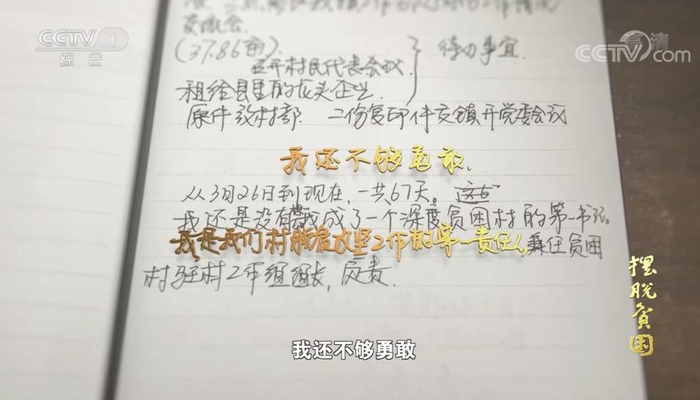 CCTV 1
综合
CCTV.com
高清
交流会
(37.86亩).
召开村民代表会议.
待办事宜.
租给县里的龙头企业
原件放村部 二份复印件交镇开党委会议
我还不够勇敢.
从3月26日到现在,一共67天。
我成了一个深度贫困村的第一书记。
我是我们村脱贫攻坚工作的第一责任人,兼任贫困
村驻村工作组组长,
我还不够勇敢
摆脱贫困